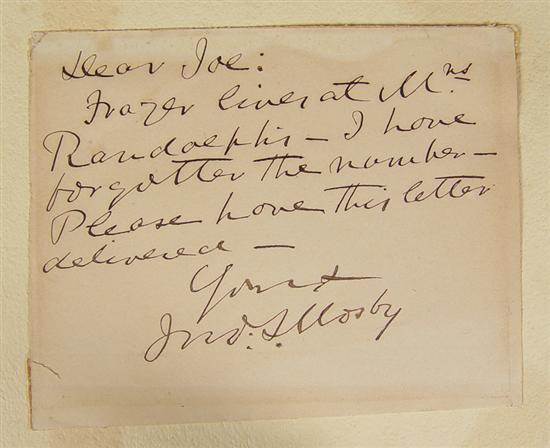 Dear Joe:
Frazer lives at Mrs
Randolph's – I have
forgotten the number –
Please have this letter
delivered –
Yours
Jno: S. Mosby